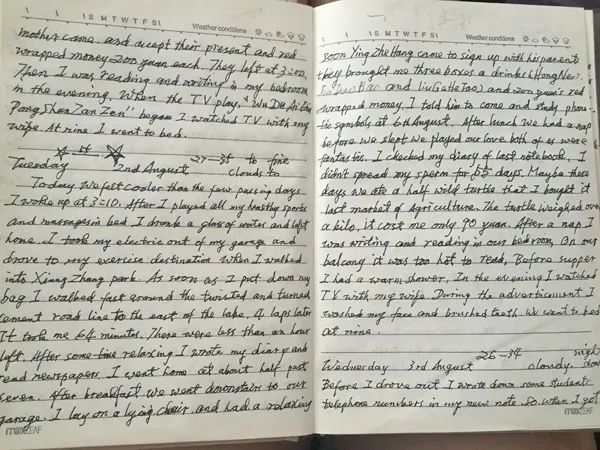 S M T W T F S Weather conditions
mother came and accept their present and red
wrapped money 200 yuan each. They left at 3=00.
Then I was reading and writing in my bedroom
in the evening. When the TV play, "Wo De
began I watched TV with my
wife. At nine I went to bed.
Tuesday 2nd August 27-35 to fine
clouds to
Today we felt cooler than the few passing days
I woke up at 3=10. After I played all my healthy sports
and massages in bed I drank a glass of water and left
home. I took my electric out of my garage and
drove to my exercise destination when I walked
into Xiang Zhang park. As soon as I put down my
bag I walked fast around the twisted and turned
cement road line to the east of the lake. 4 laps later
It took me 64 minutes. There were less than an hour
left. After some time relaxing I wrote my diary and
read newspapers. I went home at about half past
seven. After breakfast we went downstairs to our
garage. I lay on a lying chair and had a relaxing
MAXLEAF
S M T W T F S Weather conditions
soon Ying Zhe Hang came to sign up with his parents
they brought me three boxes a drinks (Hong Niu?
and Liu Ge He Tao) and 200 yuan's red
wrapped money. I told him to come and study phone-
tic symbols at 6th August. After lunch we had a nap
before we slept we played our love both of us were
fantastic. I checked my diary of last notebook, I
didn't spread my sperm for 65 days. Maybe these
days we ate a half wild turtle that I bought it
last market of Agriculture. The turtle weighed over
a kilo, it cost me only 90 yuan. After a nap I
was writing and reading in our bedroom. On our
balcony it was too hot to read. Before supper
I had a warm shower. In the evening I watched
TV with my wife. During the advertisement I
washed my face and brushed teeth. We went to bed
at nine.
Wednesday 3rd August 26-34 cloudy.
Before I drove out I wrote down some students
telephone numbers in my new note. So when I got
MAXLEAF